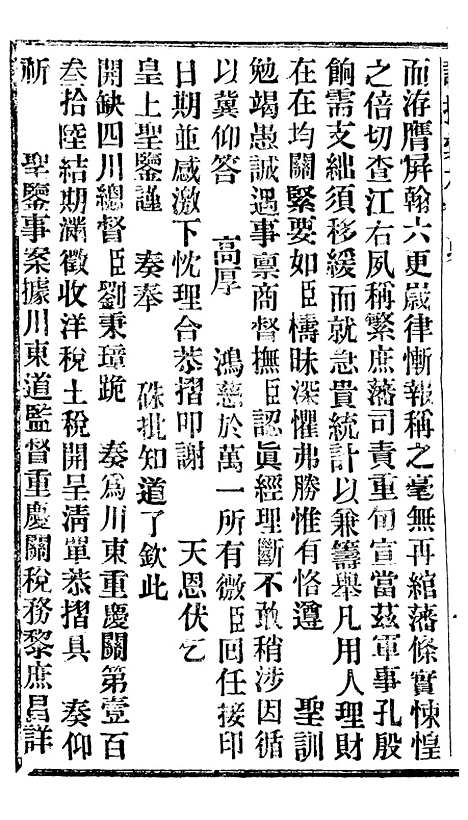 而洊膺屏翰六更嵗律慚報稱之毫無再綰藩條實悚惶
之倍切查江右夙稱繁庶藩司責重旬宣當茲軍事孔殷
餉需支絀須移緩而就急貴統計以兼籌舉凡用人理財
在在均關緊要如臣檮昧深懼弗勝惟有恪遵　聖訓
勉竭愚誠遇事禀商督撫臣認眞經理斷不敢稍涉因循
以冀仰答　高厚　鴻慈於萬一所有微臣回任接印
日期並感激下忱理合恭摺叩謝　天恩伏乞
皇上聖鑒謹　奏奉　硃批知道了欽此
開缺四川總督臣劉秉璋跪　奏爲川東重慶關第壹百
叁拾陸結期滿徵收洋稅土稅開呈清單恭摺具　奏仰
祈　聖鑒事案據川東道監督重慶關稅務黎庶昌詳